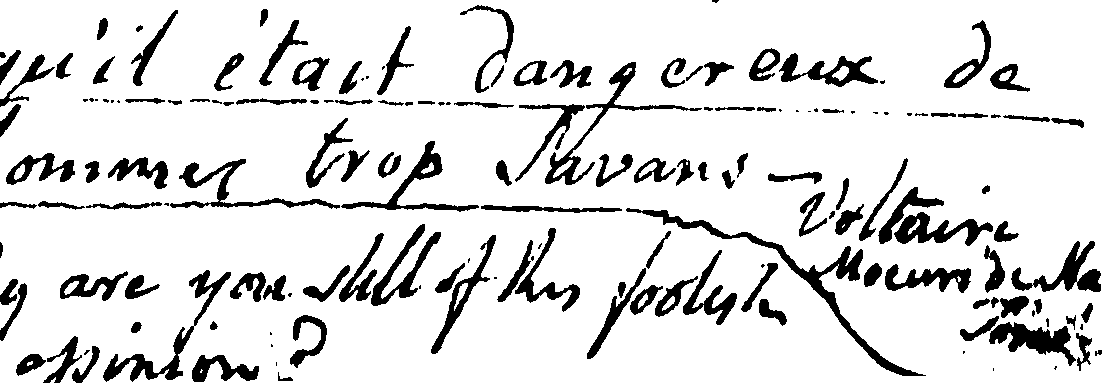 qu'il était dangereux de
hommes trop Savans —
Voltaire
Moeurs de
are you still of this foolish
opinion?